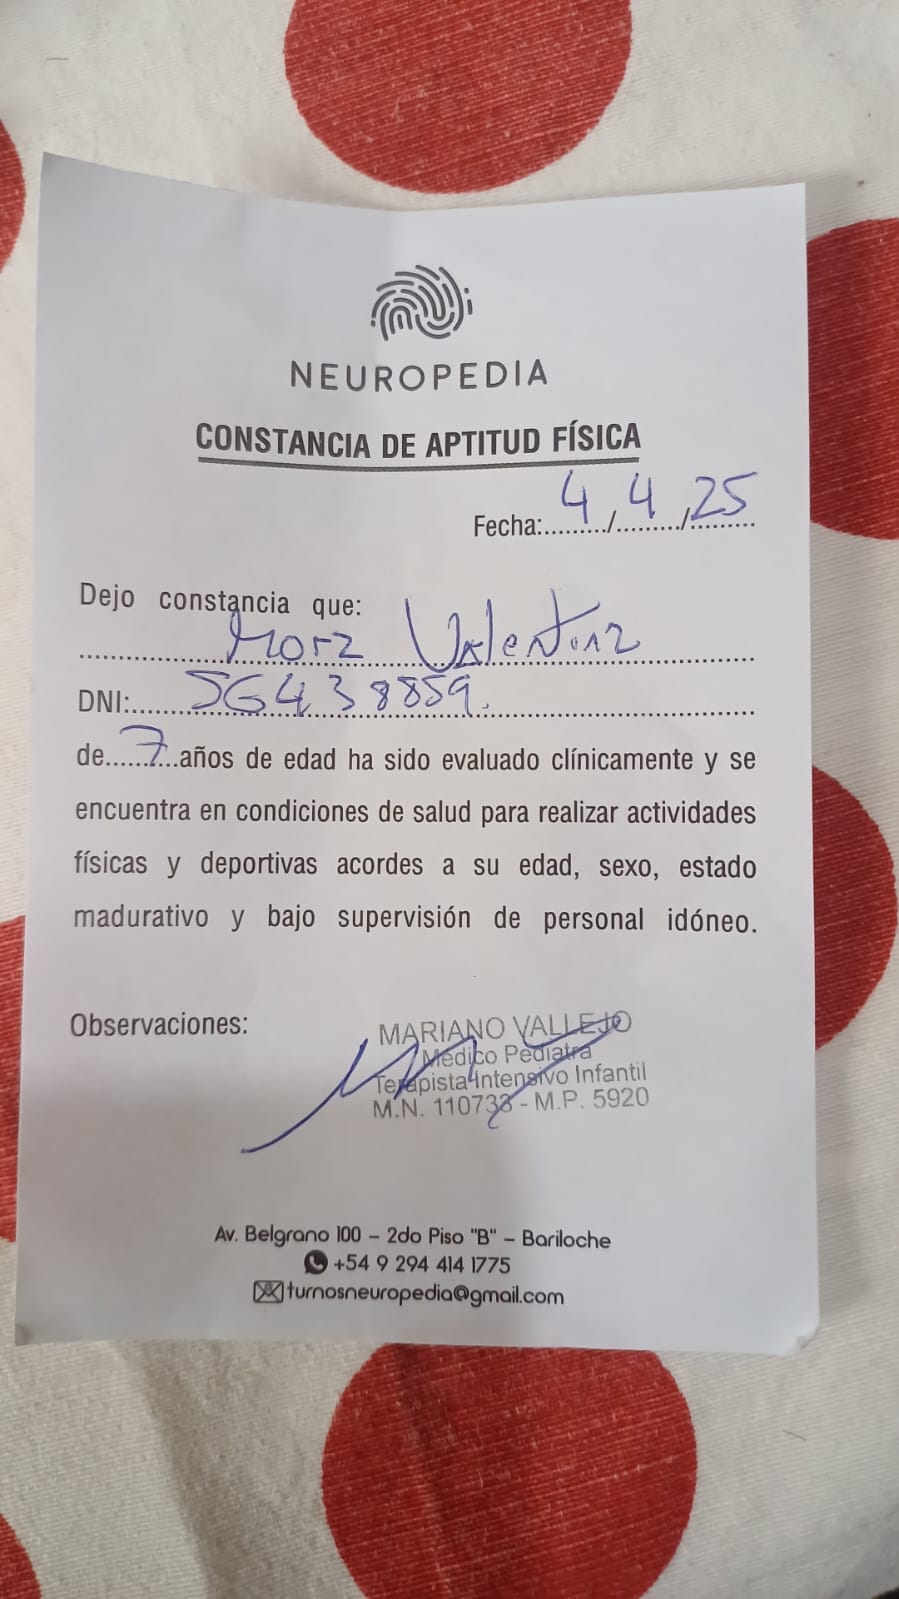 NEUROPEDIA
CONSTANCIA DE APTITUD FÍSICA
Fecha: 4/4/25
Dejo constancia que:
Mora Valentina
DNI: 56438859.
de 7 años de edad ha sido evaluado clínicamente y se
encuentra en condiciones de salud para realizar actividades
físicas y deportivas acordes a su edad, sexo, estado
madurativo y bajo supervisión de personal idóneo.
Observaciones:
MARIANO VALLEJO
Médico Pediatra
Terapista Intensivo Infantil
M.N. 110733 - M.P. 5920
Av. Belgrano 100 – 2do Piso "B" – Bariloche
+54 9 294 414 1775
turnosneuropedia@gmail.com